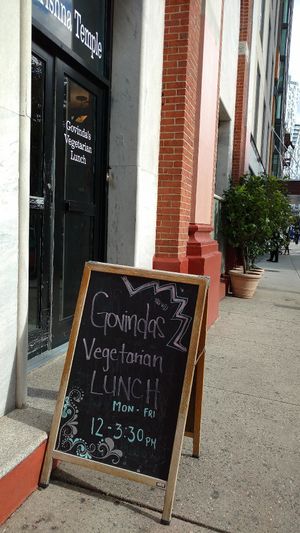 Temple
Govinda's
Vegetarian
Lunch
Govindas
Vegetarian
LUNCH
MON - FRI
12 - 3:30 PM